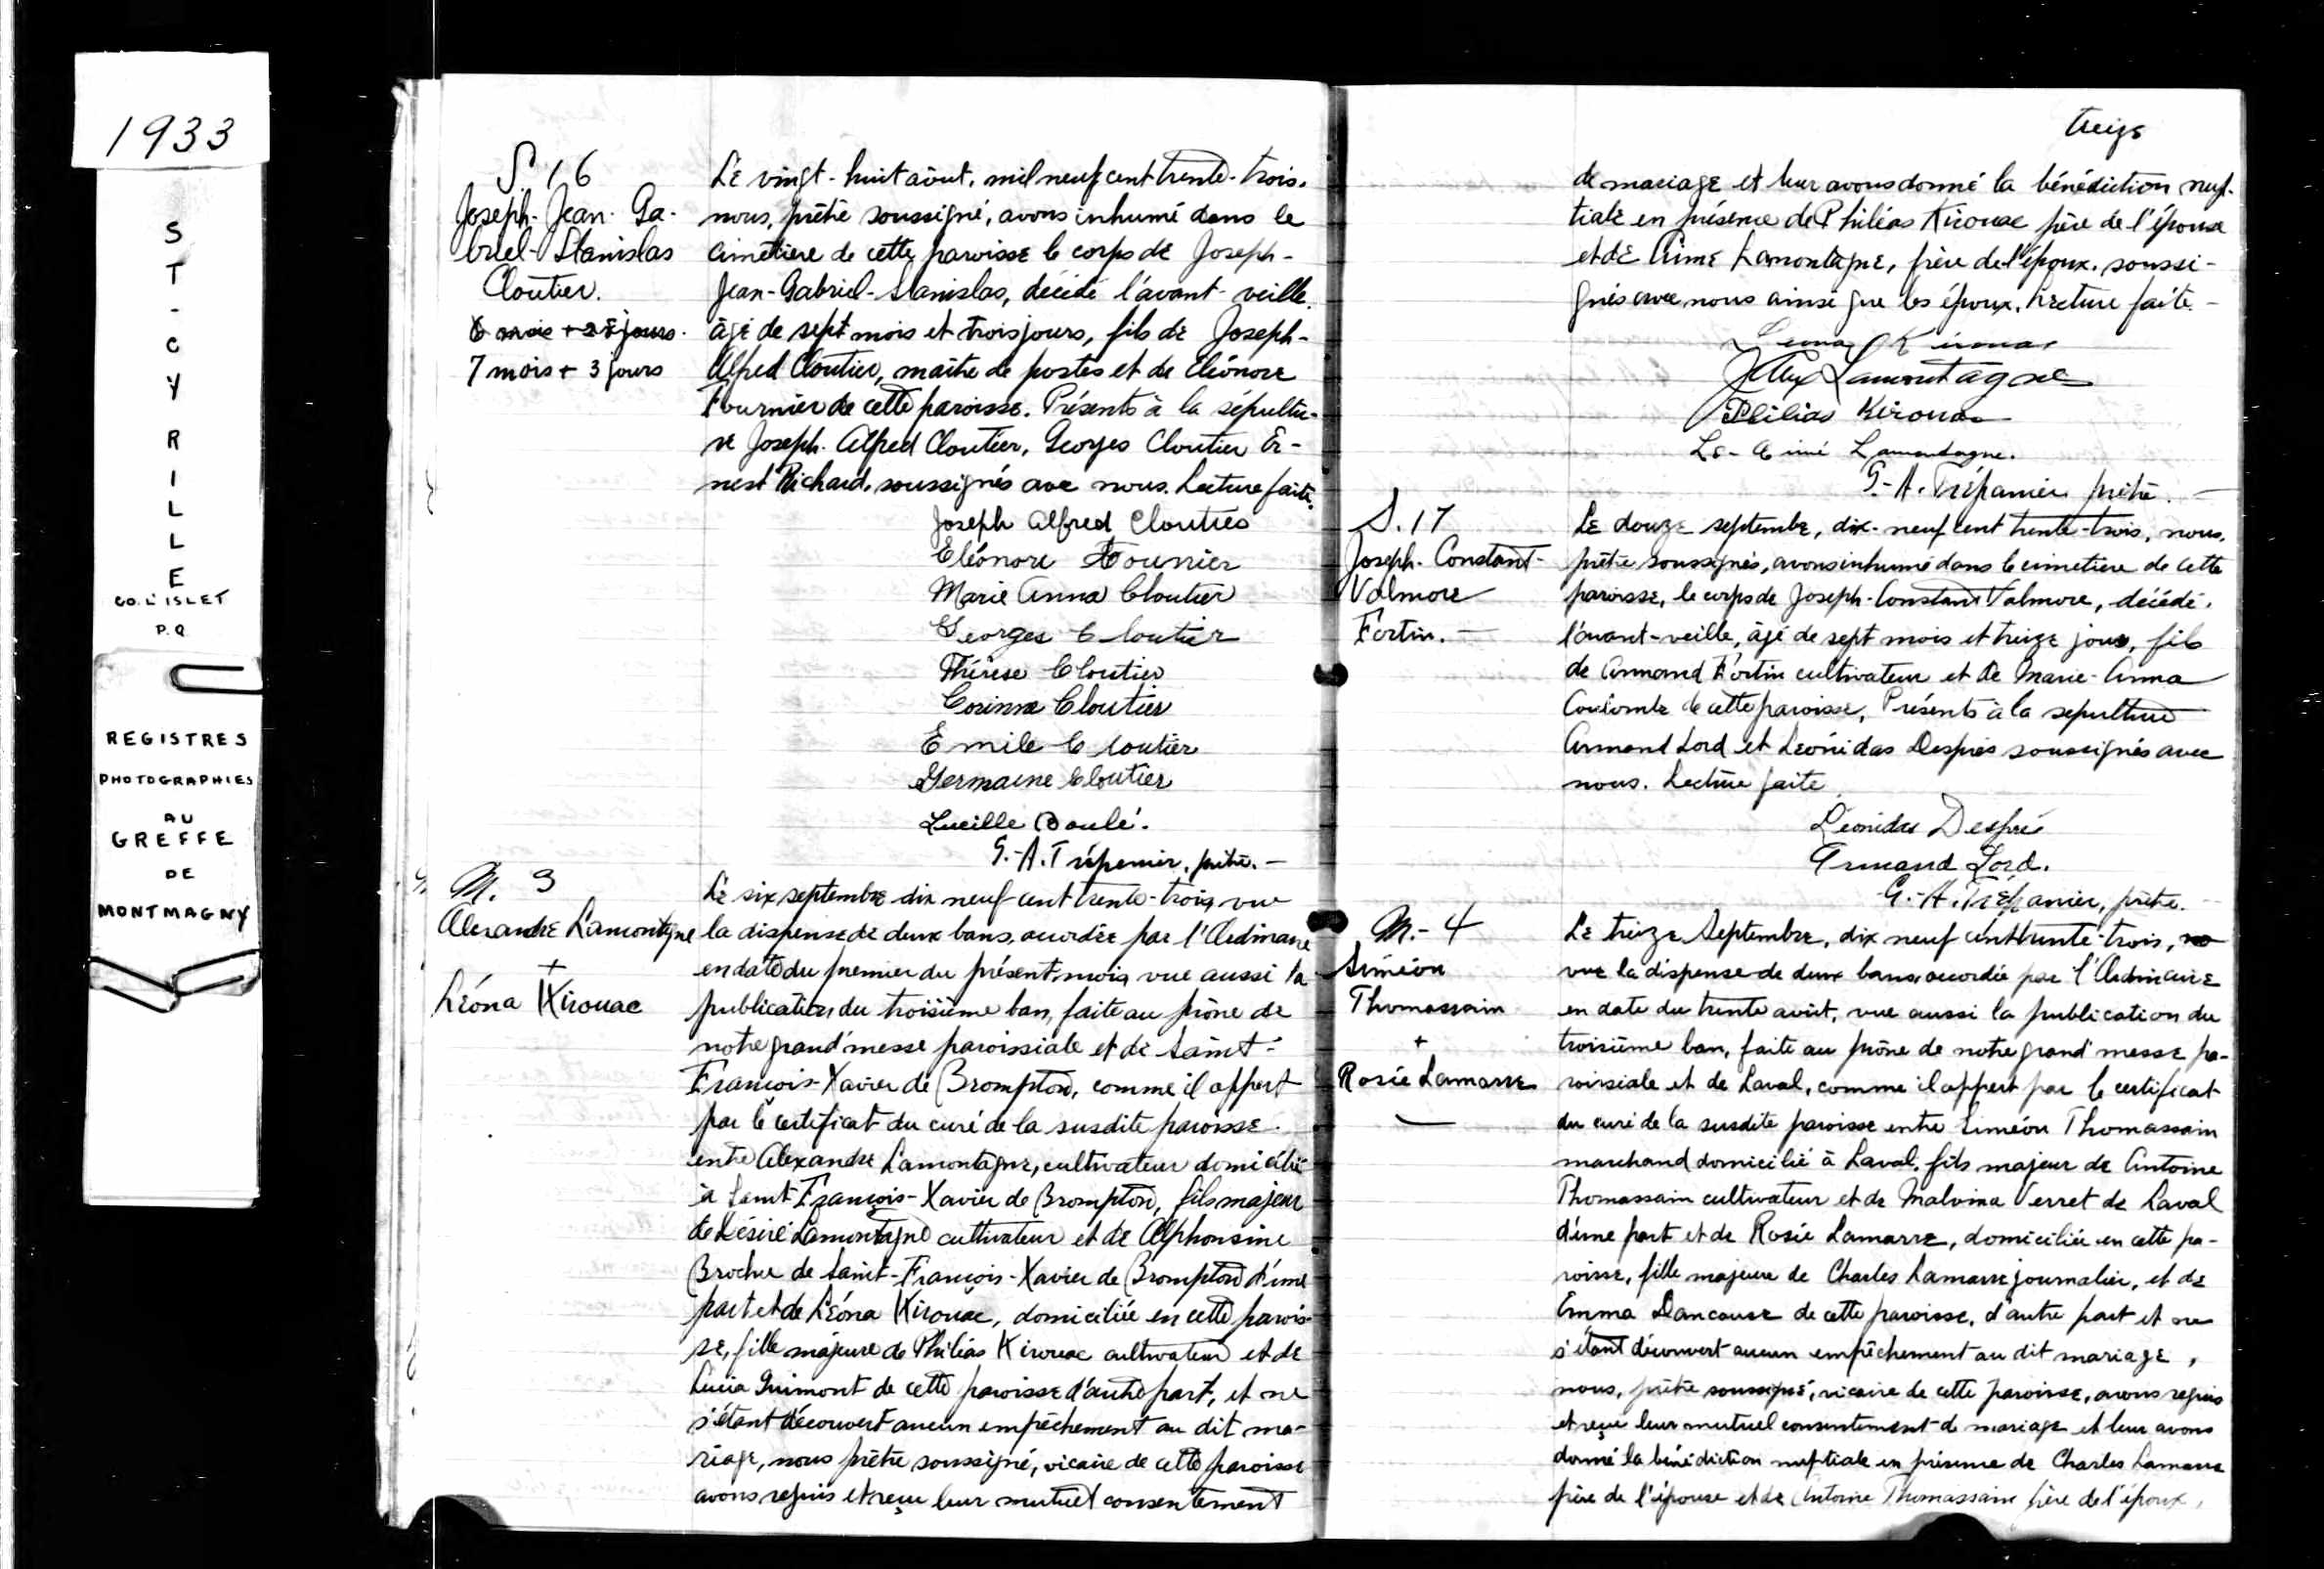 1933
ST-CYRILLE
CO. L'ISLET
P.Q.
REGISTRES
PHOTOGRAPHIES
AU
GREFFE
DE
MONTMAGNY
S 16
Joseph-Jean-Ga-
briel-Stanislas
Cloutier.
6 mois + 28 jours.
7 mois + 3 jours
Le vingt-huit août, mil neuf cent trente-trois,
nous, prêtre soussigné, avons inhumé dans le
cimetière de cette paroisse le corps de Joseph-
Jean-Gabriel-Stanislas, décédé l'avant-veille,
âgé de sept mois et trois jours, fils de Joseph-
Alfred Cloutier, maître de postes et de Eléonore
Fournier de cette paroisse. Présents à la sépultu-
re Joseph-Alfred Cloutier, Georges Cloutier Er-
nest Richard, soussignés avec nous. Lecture faite.
Joseph Alfred Cloutier
Eléonore Fournier
Marie Anna Cloutier
Georges Cloutier
Thérèse Cloutier
Corinne Cloutier
Emile Cloutier
Germaine Cloutier
Lucille Boulé.
G.-A. Trépanier, prêtre. —
M. 3
Alexandre Lamontagne
+
Léona Kirouac
Le six septembre dix neuf cent trente-trois, vue
la dispense de deux bans, accordée par l'Ordinaire
en date du premier du présent mois, vue aussi la
publication du troisième ban, faite au prône de
notre grand'messe paroissiale et de Saint-
François-Xavier de Brompton, comme il appert
par le certificat du curé de la susdite paroisse.
entre Alexandre Lamontagne, cultivateur domicilié
à Saint-François-Xavier de Brompton, fils majeur
de Désiré Lamontagne cultivateur et de Alphonsine
Brochu de Saint-François-Xavier de Brompton d'une
part et de Léona Kirouac, domiciliée en cette parois-
se, fille majeure de Philéas Kirouac cultivateur et de
Lucia Guimont de cette paroisse d'autre part, et ne
s'étant découvert aucun empêchement au dit ma-
riage, nous prêtre soussigné, vicaire de cette paroisse
avons requis et reçu leur mutuel consentement
treize
de mariage et leur avons donné la bénédiction nup-
tiale en présence de Philéas Kirouac père de l'épouse
et de Aimé Lamontagne, frère de l'époux, soussi-
gnés avec nous ainsi que les époux. Lecture faite. —
Léona Kirouac
Alex Lamontagne
Philias Kirouac
Ls-Aimé Lamontagne.
G.-A. Trépanier prêtre. —
S. 17
Joseph-Constant-
Valmore
Fortin. —
Le douze septembre, dix-neuf cent trente-trois, nous,
prêtre soussignés, avons inhumé dans le cimetière de cette
paroisse, le corps de Joseph-Constant Valmore, décédé,
l'avant-veille, âgé de sept mois et treize jours, fils
de Armand Fortin cultivateur et de Marie-Anna
Coulombe de cette paroisse, Présents à la sépulture
Armand Lord et Léonidas Després soussignés avec
nous. Lecture faite
Léonidas Després
Armand Lord.
G.-A. Trépanier, prêtre.
M.-4
Siméon
Thomassain
+
Rosée Lamarre
—
Le treize Septembre, dix neuf cent trente-trois, no
vue la dispense de deux bans, accordée par l'Ordinaire
en date du trente août, vue aussi la publication du
troisième ban, faite au prône de notre grand'messe pa-
roissiale et de Laval, comme il appert par le certificat
du curé de la susdite paroisse entre Siméon Thomassain
marchand domicilié à Laval, fils majeur de Antoine
Thomassain cultivateur et de Malvina Verret de Laval
d'une part et de Rosée Lamarre, domiciliée en cette pa-
roisse, fille majeure de Charles Lamarre journalier, et de
Emma Dancause de cette paroisse, d'autre part et ne
s'étant découvert aucun empêchement au dit mariage,
nous, prêtre soussigné, vicaire de cette paroisse, avons requis
et reçu leur mutuel consentement de mariage et leur avons
donné la bénédiction nuptiale en présence de Charles Lamarre
père de l'épouse et de Antoine Thomassain père de l'époux,